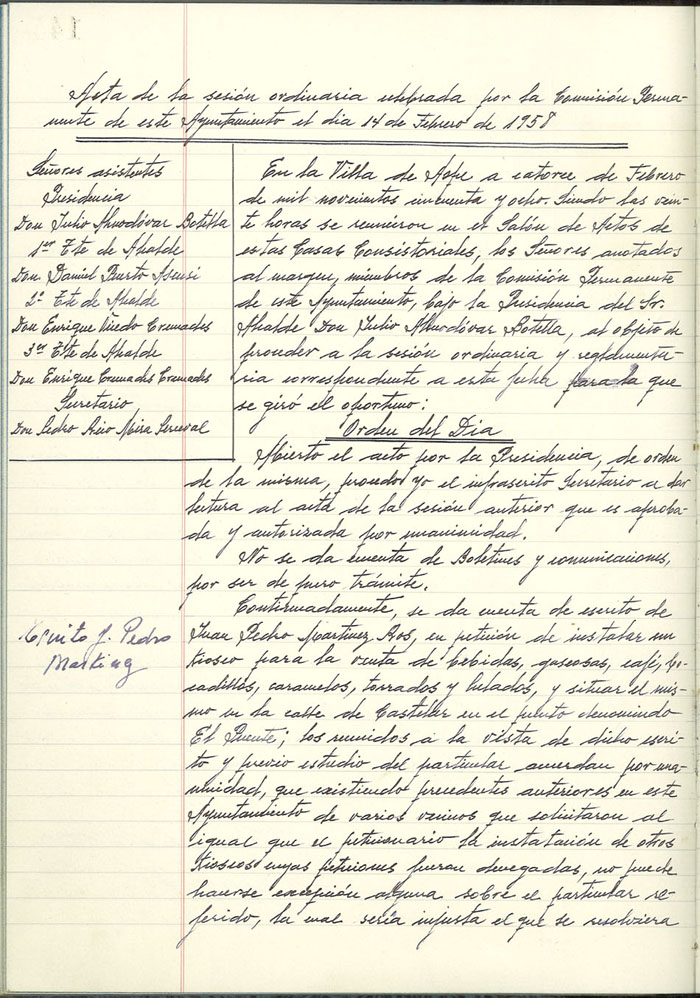 Acta de la sesión ordinaria celebrada por la Comisión Perma-
nente de este Ayuntamiento el dia 14 de Febrero de 1958
Señores asistentes
Presidencia
Don Julio Almodóvar Botella
1er Tte de Alcalde
Don Daniel Puerto Asensi
2º Tte de Alcalde
Don Enrique Cremades
3er Tte de Alcalde
Don Enrique Cremades Cremades
Secretario
Don Pedro Rico Mira
En la Villa de Aspe a catorce de Febrero
de mil novecientos cincuenta y ocho. Siendo las vein-
te horas se reunieron en el Salón de Actos de
estas Casas Consistoriales, los Señores anotados
al margen, miembros de la Comisión Permanente
de este Ayuntamiento, bajo la Presidencia del Sr.
Alcalde Don Julio Almodóvar Botella, al objeto de
proceder a la sesión ordinaria y reglamenta-
ria correspondiente a esta fecha para la que
se giró el oportuno:
Orden del Dia
Abierto el acto por la Presidencia, de orden
de la misma, procedo yo el infrascrito Secretario a dar
lectura al acta de la sesión anterior que es aproba-
da y autorizada por unanimidad.
No se da cuenta de Boletines y comunicaciones,
por ser de puro trámite.
Continuadamente, se da cuenta de escrito de
Juan Pedro Martinez Ros, en petición de instalar un
kiosco para la venta de bebidas, gaseosas, café, bo-
cadillos, caramelos, torrados y helados, y situar el mis-
mo en la calle de Castelar en el punto denominado
El Puente; los reunidos a la vista de dicho escri-
to y previo estudio del particular acuerdan por una-
nimidad, que existiendo precedentes anteriores en este
Ayuntamiento de varios vecinos que solicitaron al
igual que el peticionario la instalación de otros
kioscos cuyas peticiones fueron denegadas, no puede
hacerse excepción alguna sobre el particular re-
ferido, la cual seria injusta el que se resolviera
Escrito J. Pedro
Martinez